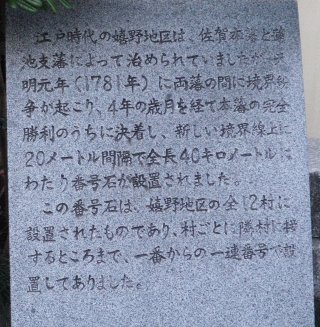 江戸時代の嬉野地区は、佐賀本藩と蓮
池支藩によって治められていましたが天
明元年(1781年)に両藩の間に境界紛
争が起こり、4年の歳月を経て本藩の完全
勝利のうちに決着し、新しい境界線上に
20メートル間隔で全長40キロメートルに
わたり番号石が設置されました。
この番号石は、嬉野地区の全12村に
設置されたものであり、村ごとに隣村に接
するところまで、一番からの一連番号で設
置してありました。